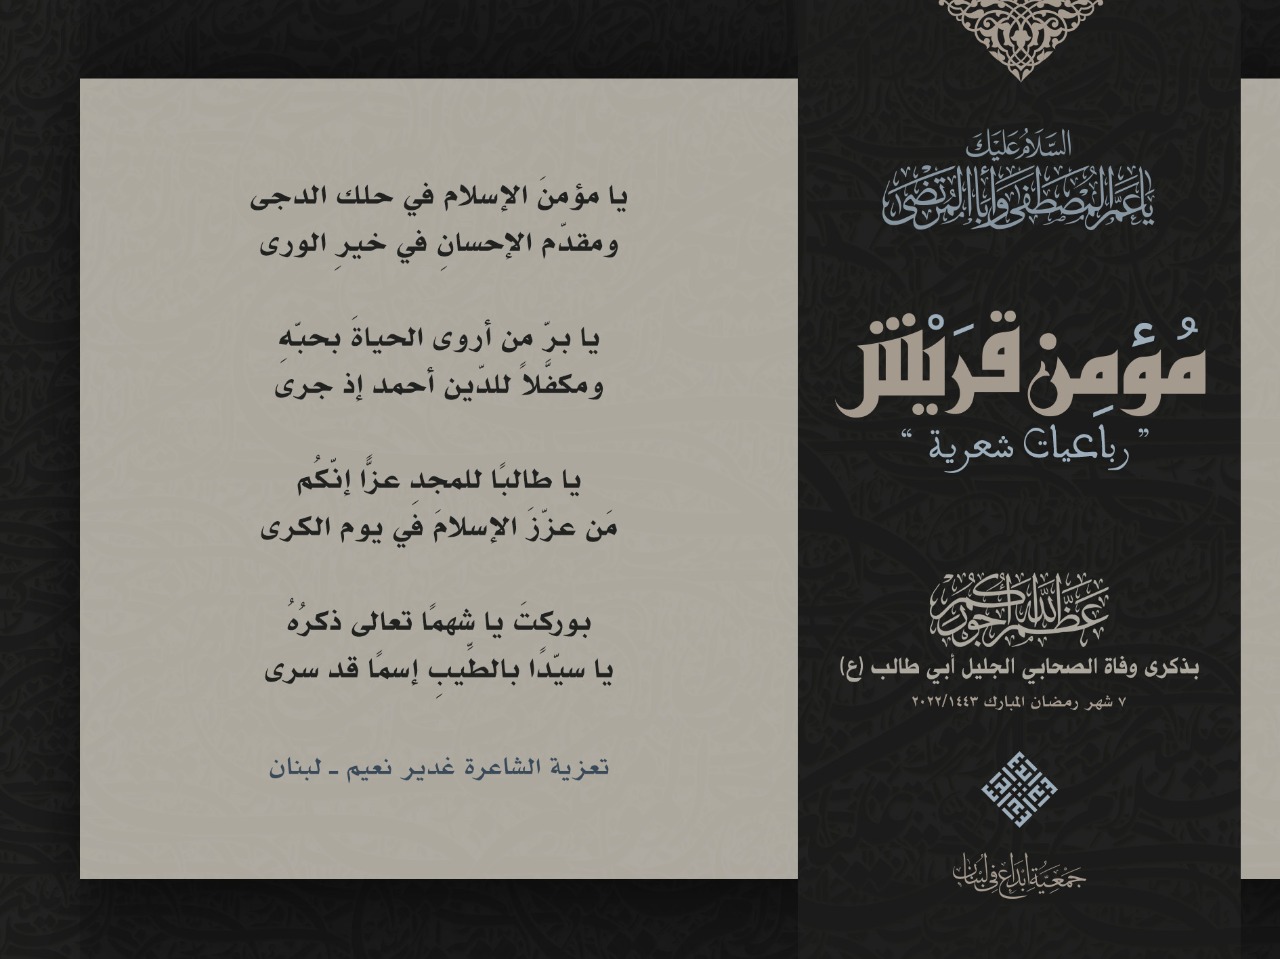 السّلام عليك
يا عمّ المصطفى وأبا المرتضى
مُؤمِن قرَيْش
” رباعيات شعرية “
عظّم الله أجوركم
بذكرى وفاة الصحابي الجليل أبي طالب (ع)
٧ شهر رمضان المبارك ٢٠٢٢/١٤٤٣
جمعية إبداع في لبنان
يا مؤمنَ الإسلام في حلك الدجى
ومقدّم الإحسانِ في خيرِ الورى
يا برّ من أروى الحياةَ بحبّهِ
ومكفّلاً للدّين أحمد إذ جرى
يا طالبًا للمجدِ عزًّا إنّكُم
مَن عزّزَ الإسلامَ في يوم الكرى
بوركتَ يا شهمًا تعالى ذكرُهُ
يا سيّدًا بالطّيبِ إسمًا قد سرى
تعزية الشاعرة غدير نعيم ـ لبنان